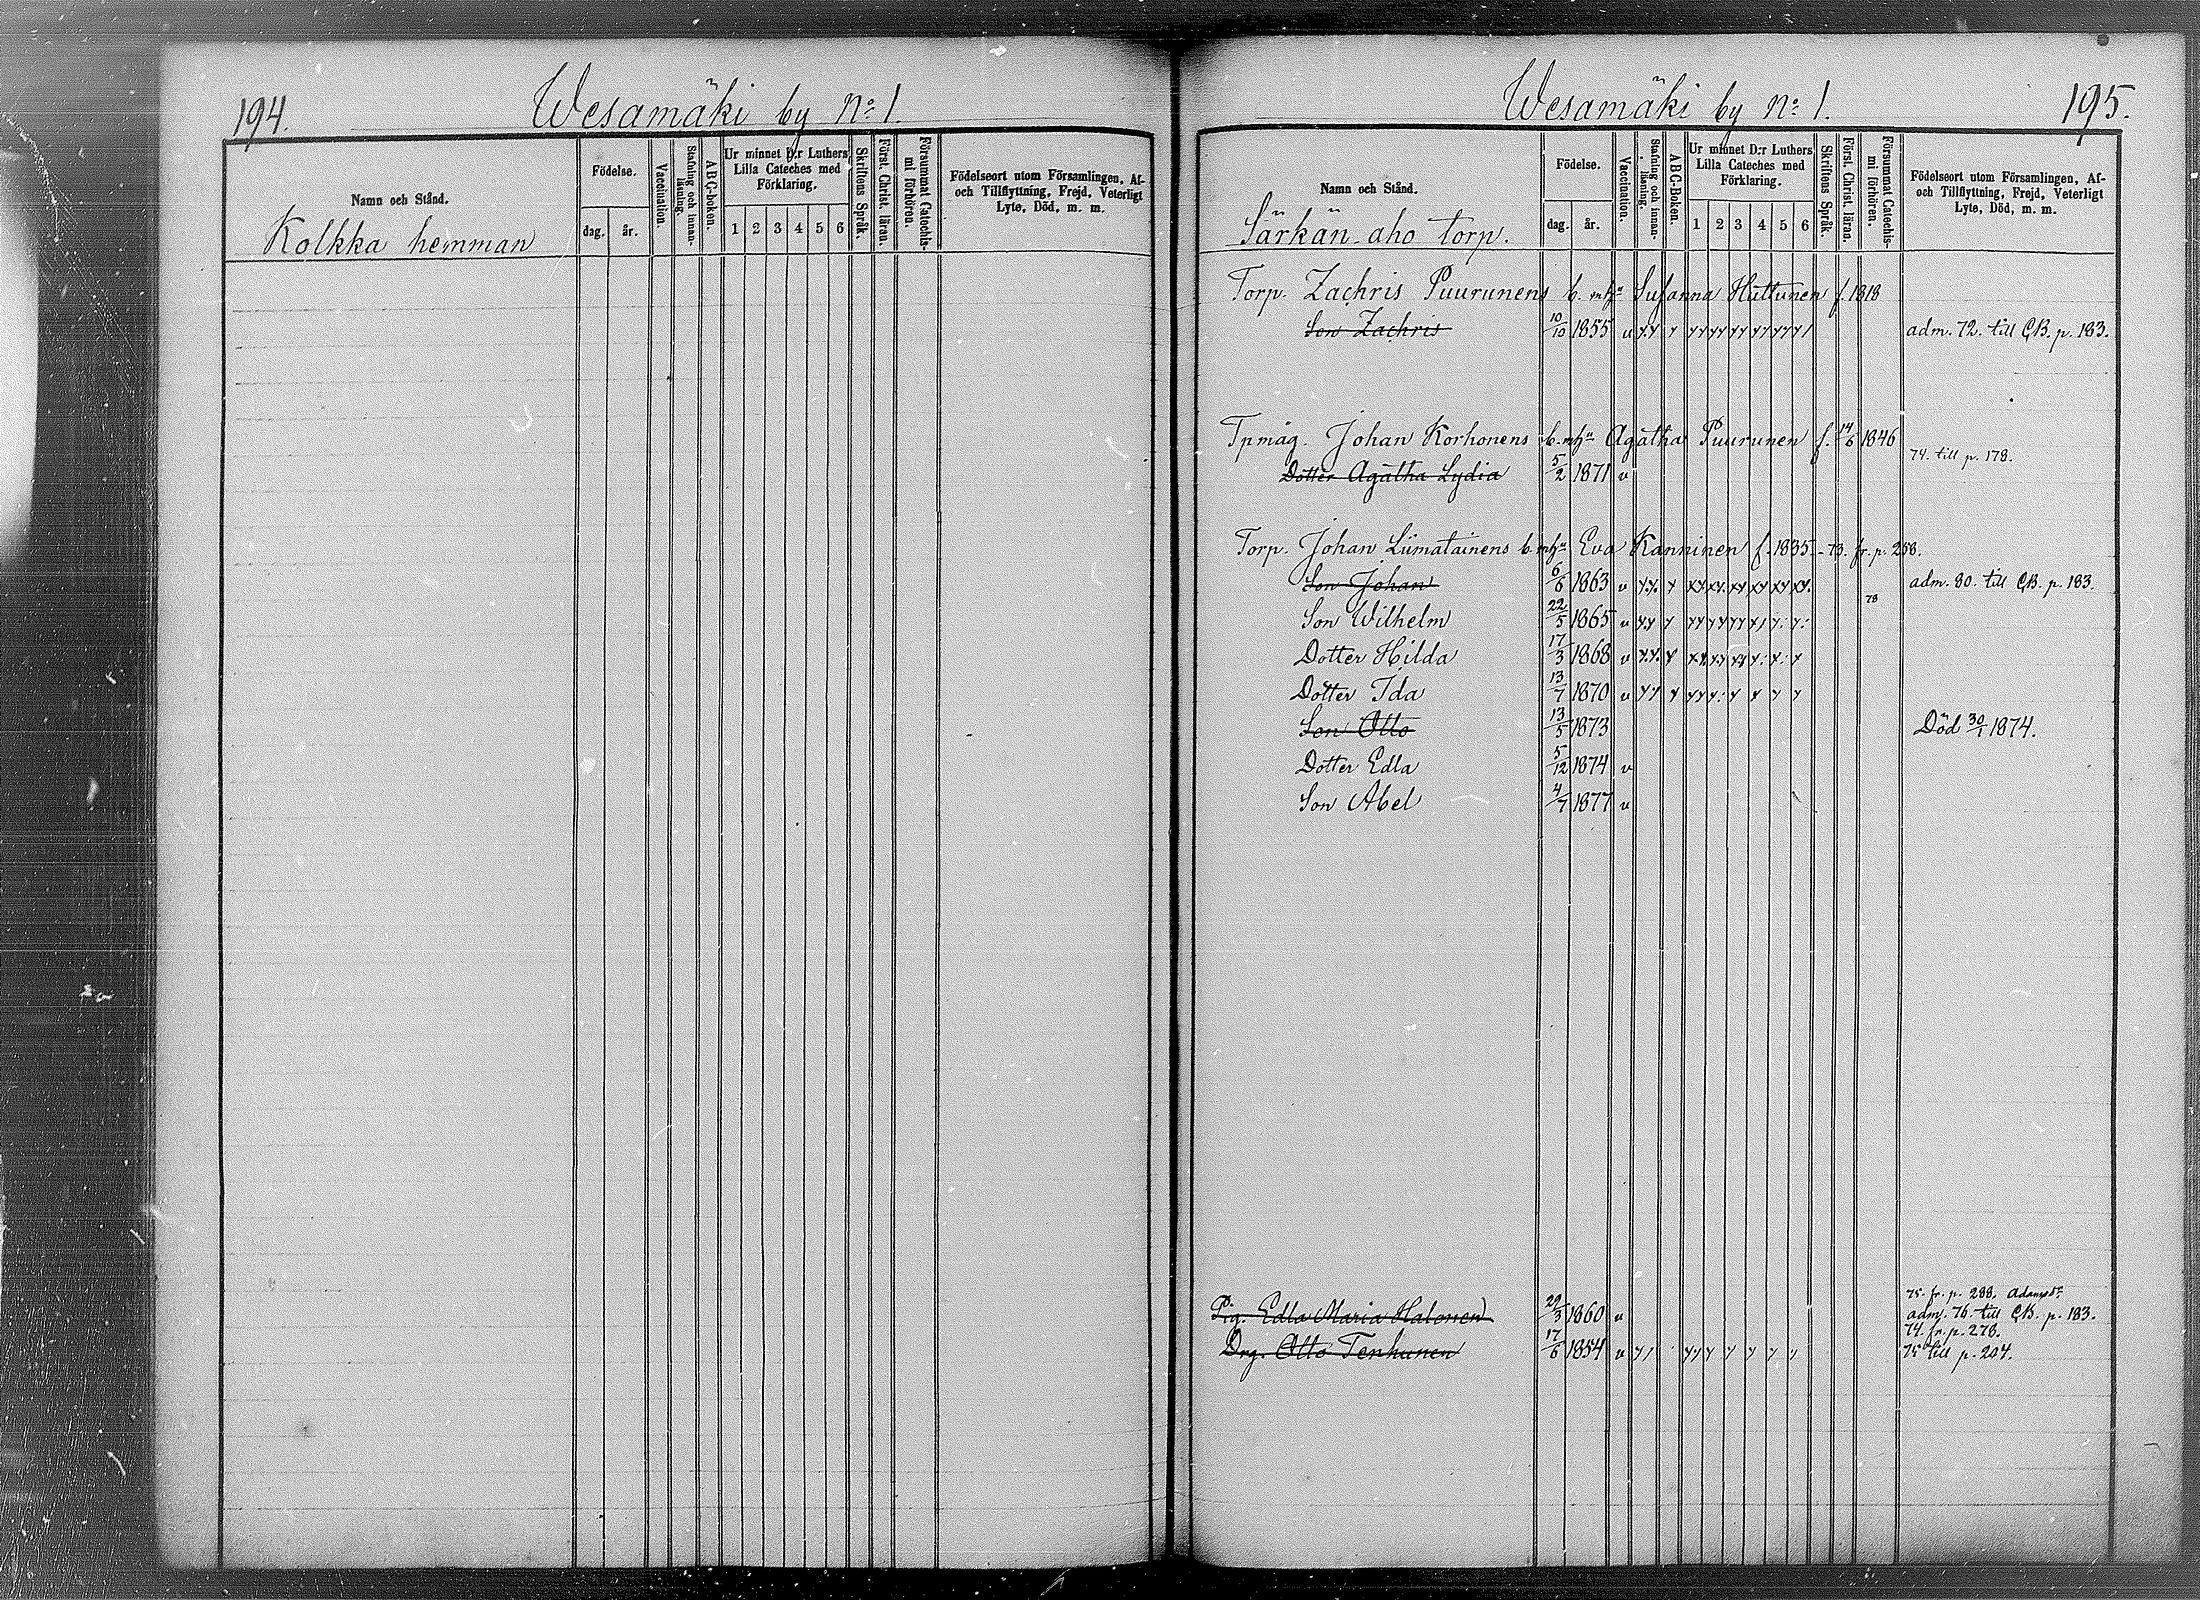 194.
Wesamäki by No 1.
Namn och Stånd.
Födelse.
dag.
år.
Vaccination.
Stafning och innanläsning.
ABC-boken.
Ur minnet D:r Luthers Lilla Cateches med Förklaring.
1 2 3 4 5 6
Skriftens Språk.
Först. Christ. läran.
Försummat Catechismi förhören.
Födelseort utom Församlingen, Af-
och Tillflyttning, Frejd, Veterligt
Lyte, Död, m. m.
Kolkka hemman
195.
Wesamäki by No 1.
Namn och Stånd.
Födelse.
dag.
år.
Vaccination.
Stafning och innanläsning.
ABC-Boken.
Ur minnet D:r Luthers Lilla Cateches med Förklaring.
1 2 3 4 5 6
Skriftens Språk.
Först. Christ. läran.
Försummat Catechismi förhören.
Födelseort utom Församlingen, Af-
och Tillflyttning, Frejd, Veterligt
Lyte, Död, m. m.
Särkän-aho torp.
Torp. Zachris Puurunens b. mh Susanna Huttunen f. 1818
Son Zachris 10/10 1855 v adm. 72. till CB. p. 183.
Tpmåg. Johan Korhonens b. mh Agatha Puurunen f. 14/6 1846
74. till p. 178.
Dotter Agatha Lydia 5/2 1871 v
Torp. Johan Liimatainens b. mh Eva Kanninen f. 1835 - 73. fr. p. 258.
Son Johan 6/6 1863 v adm. 80. till CB. p. 183.
78
Son Wilhelm 22/5 1865 v
Dotter Hilda 17/3 1868 v
Dotter Ida 13/7 1870 v
Son Otto 13/5 1873 Död 30/1 1874.
Dotter Edla 5/12 1874 v
Son Abel 4/7 1877 v
75. fr. p. 288.
Pig. Edla Maria Halonen 29/3 1860 v adm. 76. till CB. p. 183.
74. fr. p. 278.
Drg. Otto Tenhunen 17/6 1854 v 75 till p. 204.